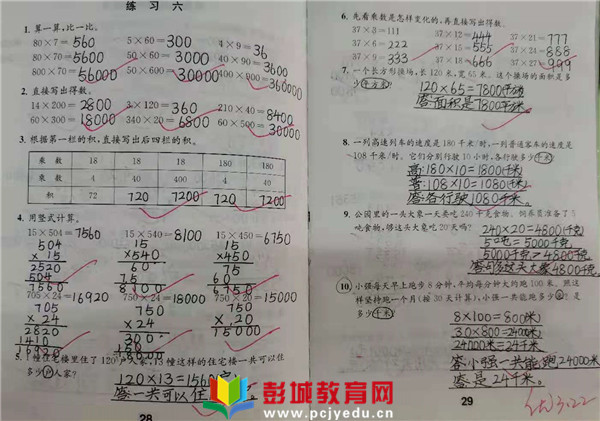 练 习 六
1. 算一算,比一比。
80×7=560 5×60=300 4×9=36
80×70=5600 50×60=3000 40×90=3600
800×70=56000 50×600=30000 400×900=360000
2. 直接写出得数。
14×200=2800 3×120=360 210×40=8400
60×300=18000 340×20=6800 60×500=30000
3. 根据第一栏的积,直接写出后四栏的积。
乘 数 18 18 18 180 180
乘 数 4 40 400 4 40
积 72 720 7200 720 7200
4. 用竖式计算。
15×504=7560 15×540=8100 15×450=6750
504 15 15
×15 ×540 ×450
2520 60 75
504 75 60
7560 8100 6750
705×24=16920 750×24=18000 750×20=15000
705 750 750
×24 ×24 ×20
2820 300 15000
1410 150
5. 1幢住宅楼里住了120户人家,13幢这样的住宅楼一共可以住
多少户人家?
120×13=1560
答:一共可以住
28
6. 先看乘数是怎样变化的,再直接写出得数。
37×3=111 37×12=444 37×21=777
37×6=222 37×15=555 37×24=888
37×9=333 37×18=666 37×27=999
7. 一个长方形操场,长120米,宽65米。这个操场的面积是多
少平方米?
120×65=7800
答:面积是7800
8. 一列高速列车的速度是180千米/时,一列普通客车的速度是
108千米/时。它们分别行驶10小时,各行驶多少千米?
高:180×10=1800(千米)
普:108×10=1080(千米)
答:各行驶1080千米。
9. 公园里的一头大象一天要吃240千克食物。饲养员准备了5
吨食物,够这头大象吃20天吗?
240×20=4800(千克)
5吨=5000千克
5000千克>4800千克
4800千克
10. 小强每天早上跑步8分钟,平均每分钟大约跑100米。照这
样坚持跑一个月(按30天计算),小强一共能跑多少米?是
多少千米?
8×100=800(米)
30×800=24000(米)
24000米=24千米
答:小强一共能跑24000米
答:是24千米。
29
3.22
彭城教育网
www.pcjyedu.cn